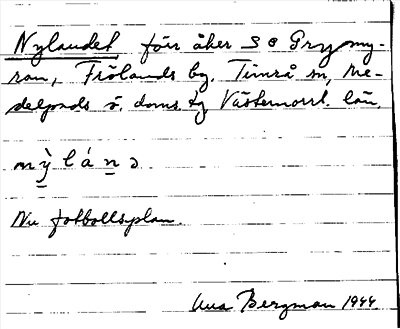 Nylandet förr åker S o Grynmy-
ran, Frölands by, Timrå sn, Me-
delpads ö. doms. Västernorrl. län.
nỳlánə
Nu fotbollsplan.
Ana Bergman 1944